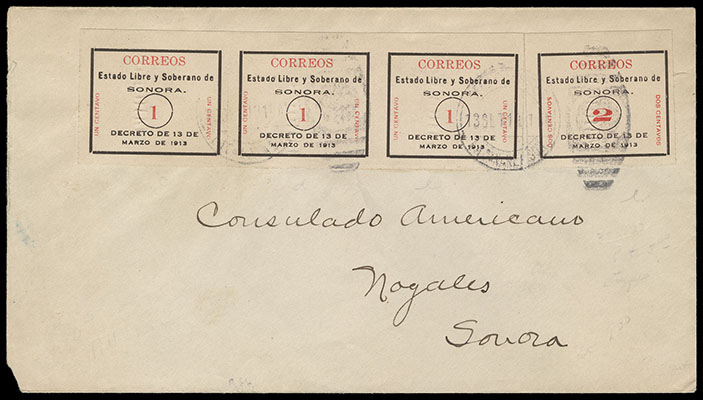 CORREOS
Estado Libre y Soberano de
SONORA.
UN CENTAVO
1
UN CENTAVO
DECRETO DE 13 DE
MARZO DE 1913
CORREOS
Estado Libre y Soberano de
SONORA.
1
UN CENTAVO
DECRETO DE 13 DE
MARZO DE 1913
CORREOS
Estado Libre y Soberano de
SONORA.
UN CENTAVO
1
UN CENTAVO
DECRETO DE 13 DE
MARZO DE 1913
CORREOS
Estado Libre y Soberano de
SONORA.
DOS CENTAVOS
2
DOS CENTAVOS
DECRETO DE 13 DE
MARZO DE 1913
Consulado Americano
Nogales
Sonora